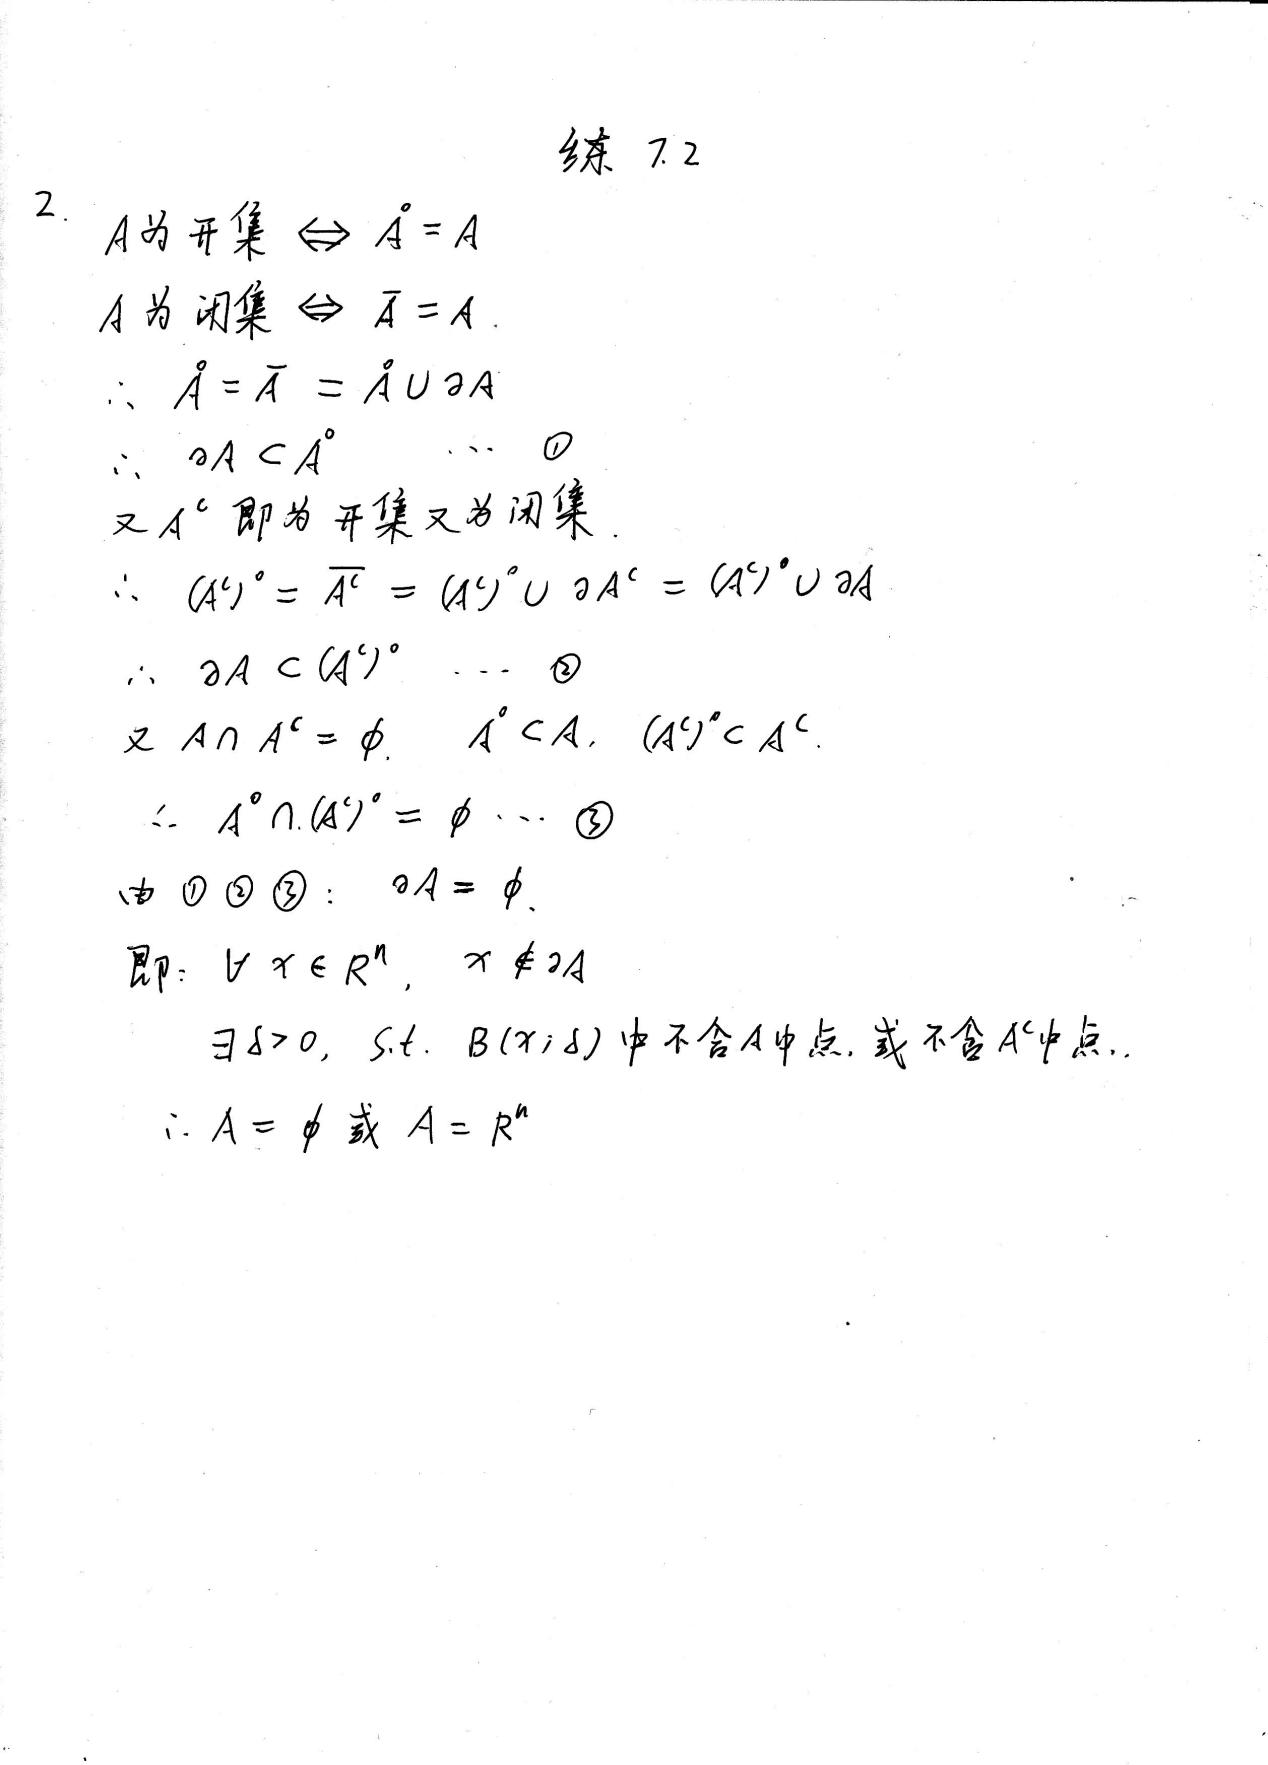 练 7.2
2.
A为开集 ⇔ Å = A
A为闭集 ⇔ Ā = A.
∴ Å = Ā = Å ∪ ∂A
∴ ∂A ⊂ A° ... ①
又 Aᶜ 即为开集又为闭集.
∴ (Aᶜ)° = \overline{Aᶜ} = (Aᶜ)° ∪ ∂Aᶜ = (Aᶜ)° ∪ ∂A
∴ ∂A ⊂ (Aᶜ)° ... ②
又 A ∩ Aᶜ = φ. A° ⊂ A, (Aᶜ)° ⊂ Aᶜ.
∴ A° ∩ (Aᶜ)° = φ ... ③
由 ① ② ③: ∂A = φ.
即: ∀ x ∈ Rⁿ, x ∉ ∂A
∃ δ > 0, s.t. B(x; δ) 中不含A中点. 或不含Aᶜ中点..
∴ A = φ 或 A = Rⁿ